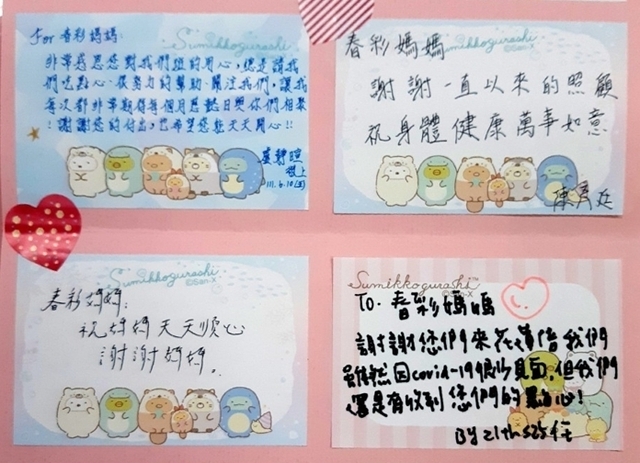 For 春彩媽媽:
Sumikkogurashi
©San-X
非常感恩您對我們組的用心,總是請我
們吃點心、很多力的幫助、關注我們,讓我
每次都非常期待每個月慈懿日與你們相聚
!謝謝您的付出,也希望您能天天開心!!
敬上
111.6.10(五)
Sumikkogurashi
©San-X
春彩媽媽
謝謝一直以來的照顧
祝身體健康萬事如意
陳
Sumikkogurashi
©San-X
春彩媽媽:
祝媽媽天天順心
謝謝媽媽.
Sumikkogurashi
©San-X
To. 春彩媽媽
謝謝您們來花蓮陪我們
雖然因covid-19很少見面,但我們
還是有收到您們的點心!
BY 21th525任